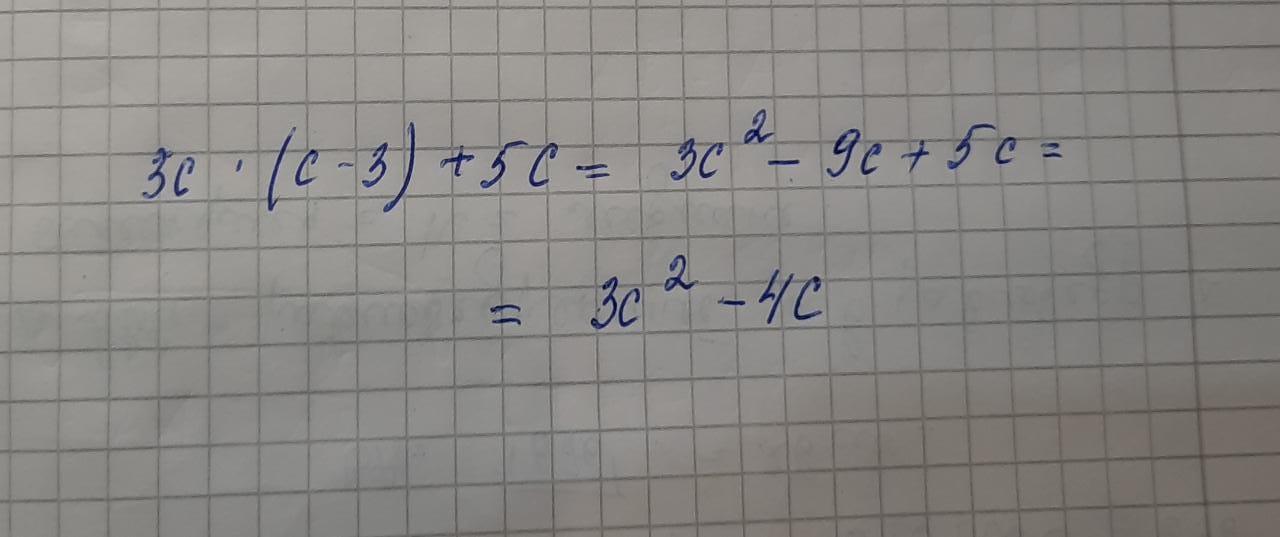 3c · (c - 3) + 5c = 3c² - 9c + 5c =
= 3c² - 4c